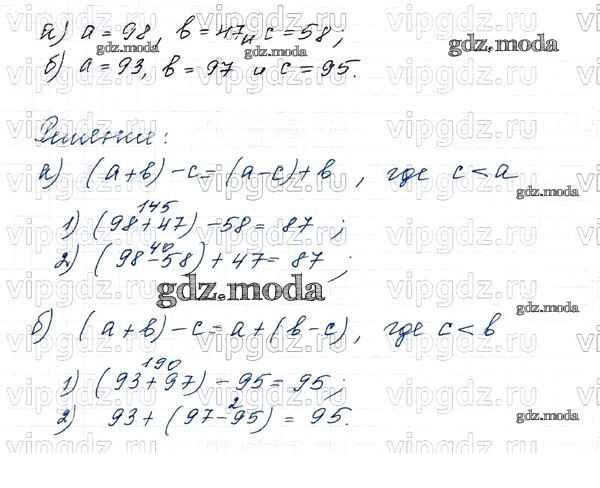 а) a = 98, b = 47 и c = 58;
б) a = 93, b = 97 и c = 95.
Решение:
а) (a+b)-c=(a-c)+b, где c<a
145
1) (98+47)-58= 87;
40
2) (98-58)+47=87;
б) (a+b)-c=a+(b-c), где c<b
190
1) (93+97)-95=95;
2
2) 93+(97-95)=95.
vipgdz.ru
gdz.moda